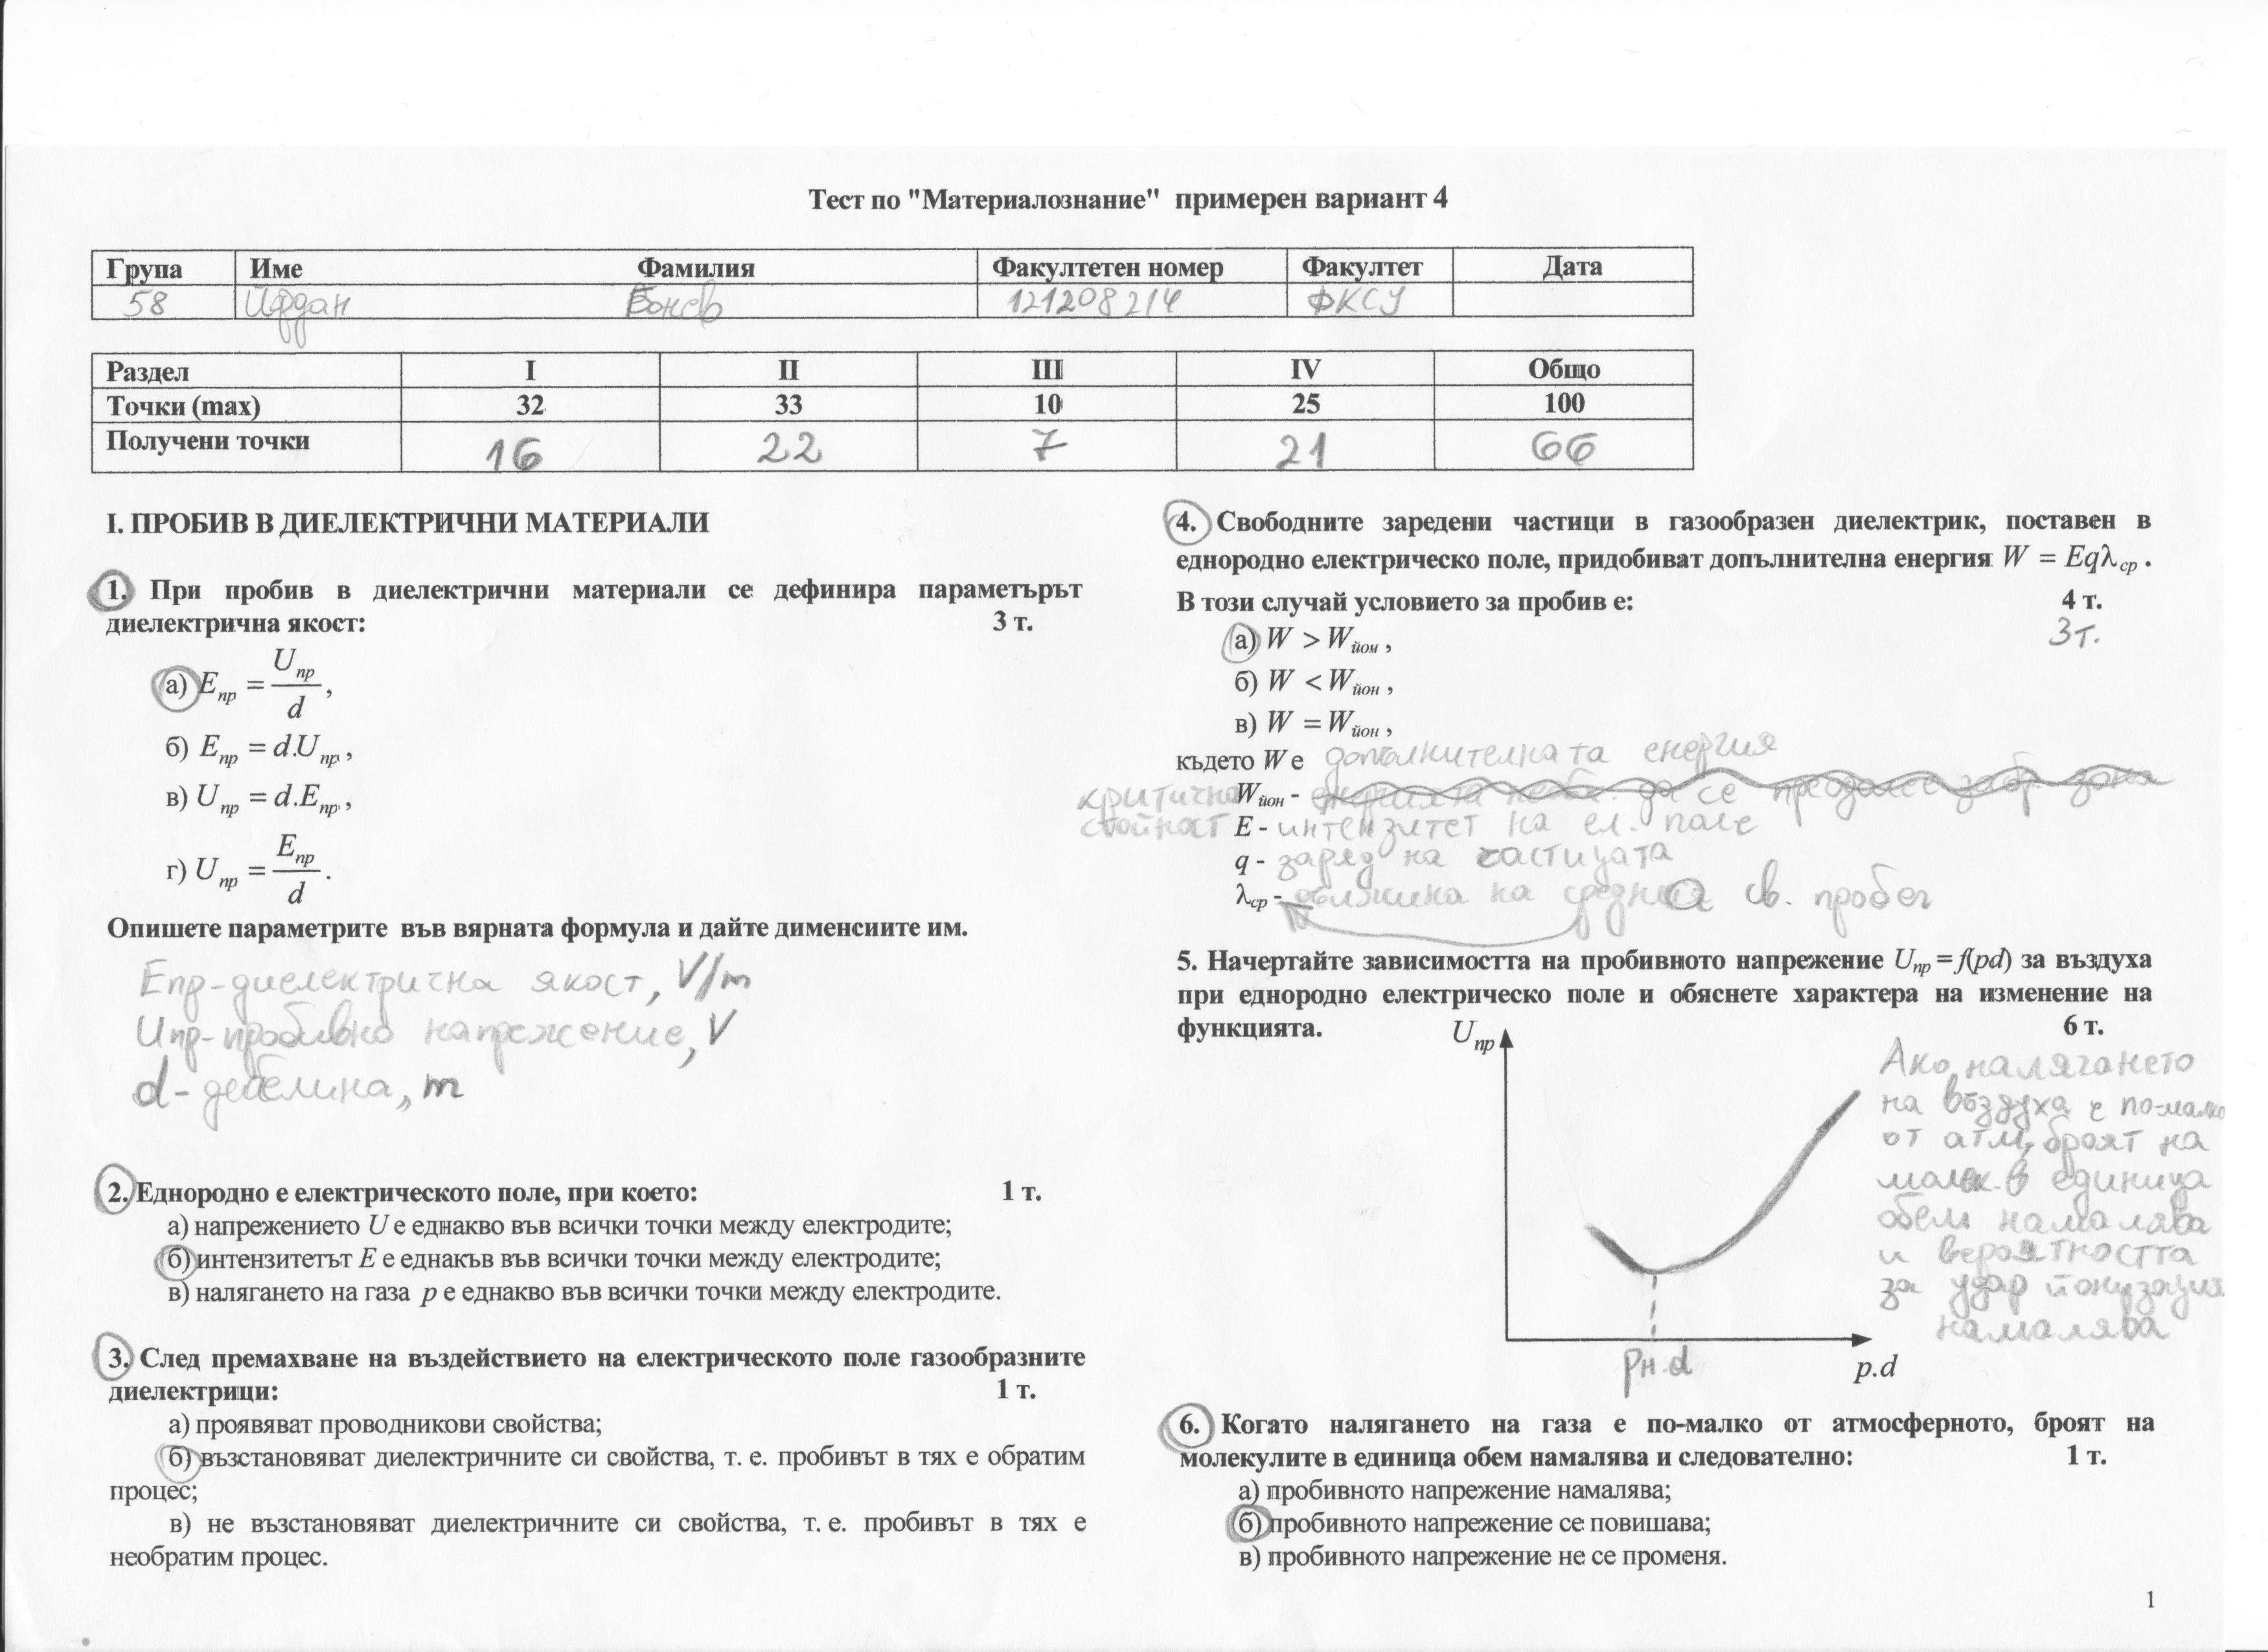 Тест по "Материалознание" примерен вариант 4
Група Име Фамилия Факултетен номер Факултет Дата
58 Йордан Бонев 121208214 ФКСУ
Раздел I II III IV Общо
Точки (max) 32 33 10 25 100
Получени точки 16 22 7 21 66
I. ПРОБИВ В ДИЕЛЕКТРИЧНИ МАТЕРИАЛИ
1. При пробив в диелектрични материали се дефинира параметърът
диелектрична якост: 3 т.
а) E_пр = U_пр / d ,
б) E_пр = d.U_пр ,
в) U_пр = d.E_пр ,
г) U_пр = E_пр / d .
Опишете параметрите във вярната формула и дайте дименсиите им.
Eпр-диелектрична якост, V/m
Uпр-пробивно напрежение, V
d-дебелина, m
2. Еднородно е електрическото поле, при което: 1 т.
а) напрежението U е еднакво във всички точки между електродите;
б) интензитетът E е еднакъв във всички точки между електродите;
в) налягането на газа p е еднакво във всички точки между електродите.
3. След премахване на въздействието на електрическото поле газообразните
диелектрици: 1 т.
а) проявяват проводникови свойства;
б) възстановяват диелектричните си свойства, т. е. пробивът в тях е обратим
процес;
в) не възстановяват диелектричните си свойства, т. е. пробивът в тях е
необратим процес.
4. Свободните заредени частици в газообразен диелектрик, поставен в
еднородно електрическо поле, придобиват допълнителна енергия W = Eqλ_ср .
В този случай условието за пробив е: 4 т.
3т.
а) W > W_йон ,
б) W < W_йон ,
в) W = W_йон ,
където W е допълнителната енергия
W_йон - критична
стойност
E - интензитет на ел. поле
q - заряд на частицата
λ_ср - дължина на средния св. пробег
5. Начертайте зависимостта на пробивното напрежение U_пр = f(pd) за въздуха
при еднородно електрическо поле и обяснете характера на изменение на
функцията. 6 т.
U_пр
Ако налягането
на въздуха е по-малко
от атм, броят на
молек. в единица
обем намалява
и вероятността
за удар йонизация
намалява
pн.d
p.d
6. Когато налягането на газа е по-малко от атмосферното, броят на
молекулите в единица обем намалява и следователно: 1 т.
а) пробивното напрежение намалява;
б) пробивното напрежение се повишава;
в) пробивното напрежение не се променя.
1